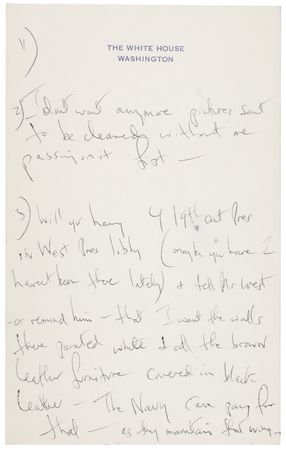 THE WHITE HOUSE
WASHINGTON
1)
2) I don't want anymore pictures sent
to be cleaned without me
passing on it first —
3) Will yr hang 4 19th cent Pres
in West Pres lobby (maybe you have I
haven't been there lately) & tell Mr West
or remind him — that I want the walls
there painted white & all the brown
leather furniture covered in black
leather — The Navy can pay for
that — as they maintain that wing —